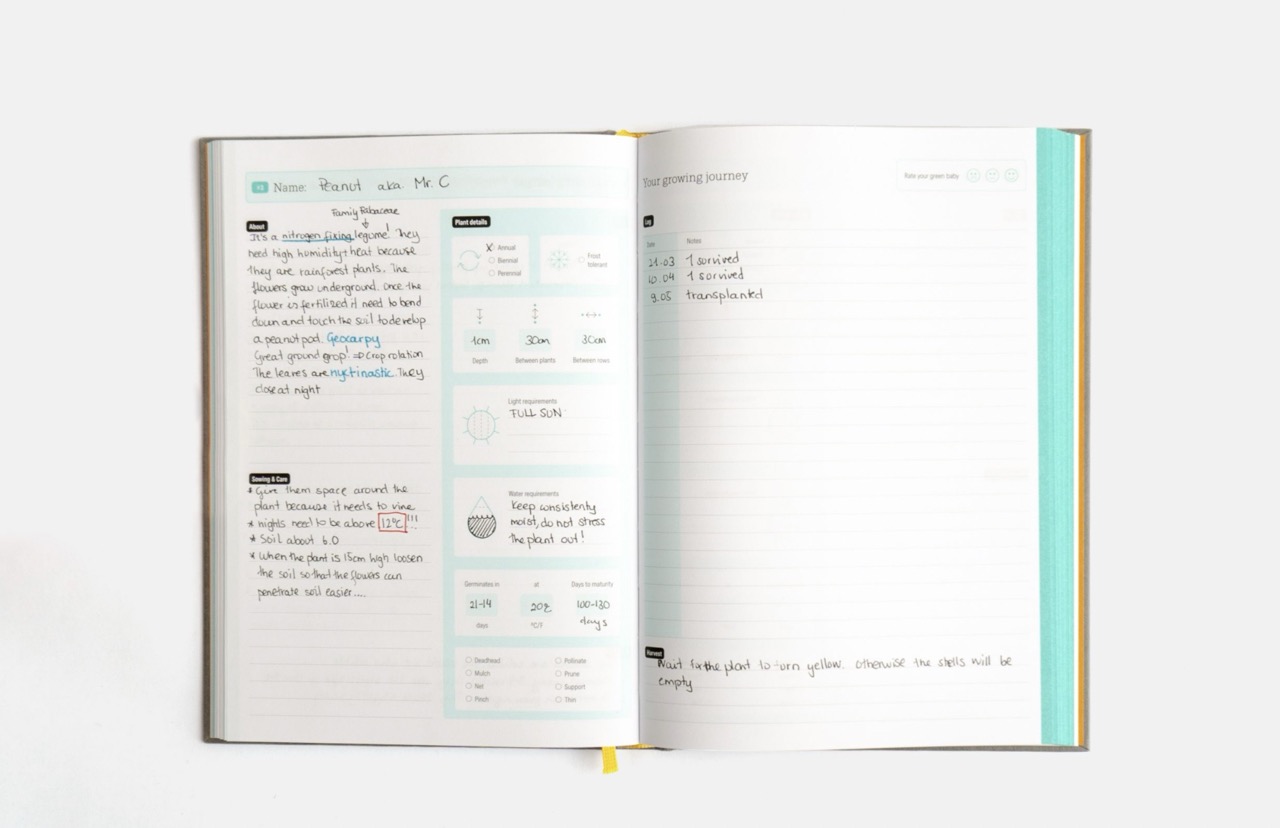 Name: Peanut aka. Mr. C
Family Fabaceae
About
It's a nitrogen fixing legume! They
need high humidity+heat because
they are rainforest plants. The
flowers grow underground. Once the
flower is fertilized it need to bend
down and touch the soil to develop
a peanut pod. Geocarpy
Great ground grop! ⇒ Crop rotation
The leaves are nyctinastic. They
close at night
Sowing & Care
* Give them space around the
plant because it needs to vine
* nights need to be above 12°C!!!
* Soil about 6.0
* When the plant is 15cm high loosen
the soil so that the flowers can
penetrate soil easier....
Plant details
X Annual
Biennial
Perennial
Frost
tolerant
1cm 30cm 30cm
Depth Between plants Between rows
Light requirements
FULL SUN
Water requirements
Keep consistenty
moist, do not stress
the plant out!
Germinates in at Days to maturity
21-14 20°C 100-130
days °C/F days
Deadhead Pollinate
Mulch Prune
Net Support
Pinch Thin
Your growing journey
Rate your green baby
Log
Date Notes
21.03 1 sorvived
10.04 1 sorvived
9.05 transplanted
Harvest
Wait for the plant to turn yellow. otherwise the shells will be
empty